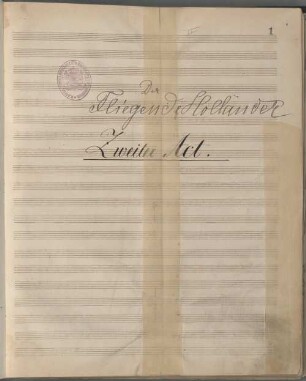 1
Der
Fliegende Holländer
Zweiter Act.